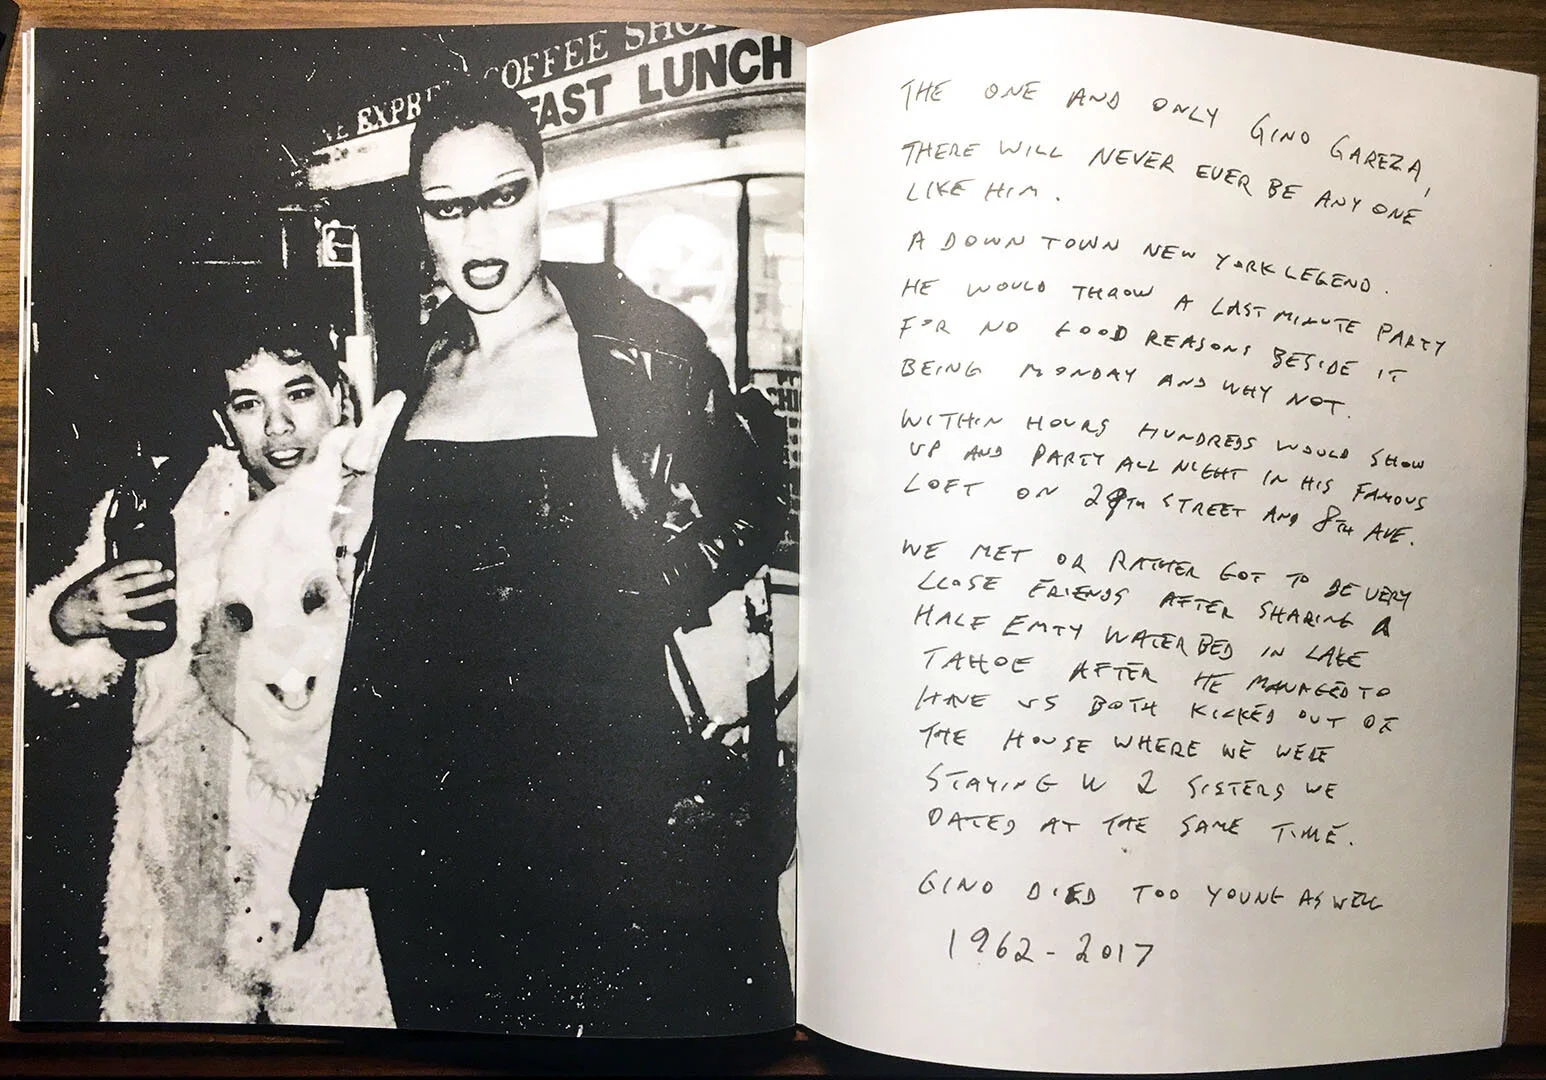 COFFEE SHOP
EXPR
FAST LUNCH
THE ONE AND ONLY GINO GAREZA,
THERE WILL NEVER EVER BE ANYONE
LIKE HIM.
A DOWN TOWN NEW YORK LEGEND.
HE WOULD THROW A LAST MINUTE PARTY
FOR NO GOOD REASONS BESIDE IT
BEING MONDAY AND WHY NOT.
WITHIN HOURS HUNDREDS WOULD SHOW
UP AND PARTY ALL NIGHT IN HIS FAMOUS
LOFT ON 29TH STREET AND 8TH AVE.
WE MET OR RATHER GOT TO BE VERY
CLOSE FRIENDS AFTER SHARING A
HALF EMTY WATERBED IN LAKE
TAHOE AFTER HE MANAGED TO
HAVE US BOTH KICKED OUT OF
THE HOUSE WHERE WE WERE
STAYING W 2 SISTERS WE
DATED AT THE SAME TIME.
GINO DIED TOO YOUNG AS WELL
1962-2017